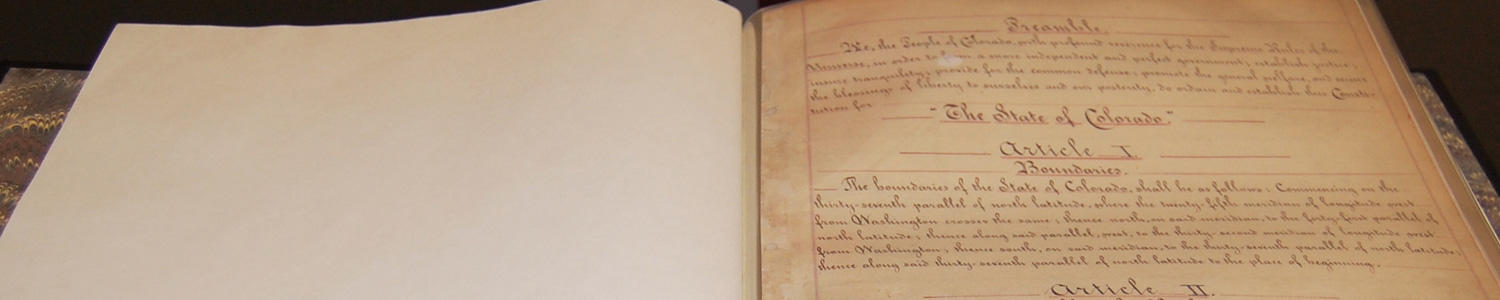 Preamble.
We, the People of Colorado, with profound reverence for the Supreme Ruler of the
Universe, in order to form a more independent and perfect government; establish justice;
insure tranquility; provide for the common defense; promote the general welfare, and secure
the blessings of liberty to ourselves and our posterity, do ordain and establish this Consti-
tution for
"The State of Colorado."
Article I.
Boundaries.
The boundaries of the State of Colorado, shall be as follows: Commencing on the
thirty-seventh parallel of north latitude, where the twenty-fifth meridian of longitude west
from Washington crosses the same; thence north, on said meridian, to the forty-first parallel of
north latitude; thence along said parallel, west, to the thirty-second meridian of longitude west
from Washington; thence south, on said meridian, to the thirty-seventh parallel of north latitude;
thence along said thirty-seventh parallel of north latitude to the place of beginning.
Article II.